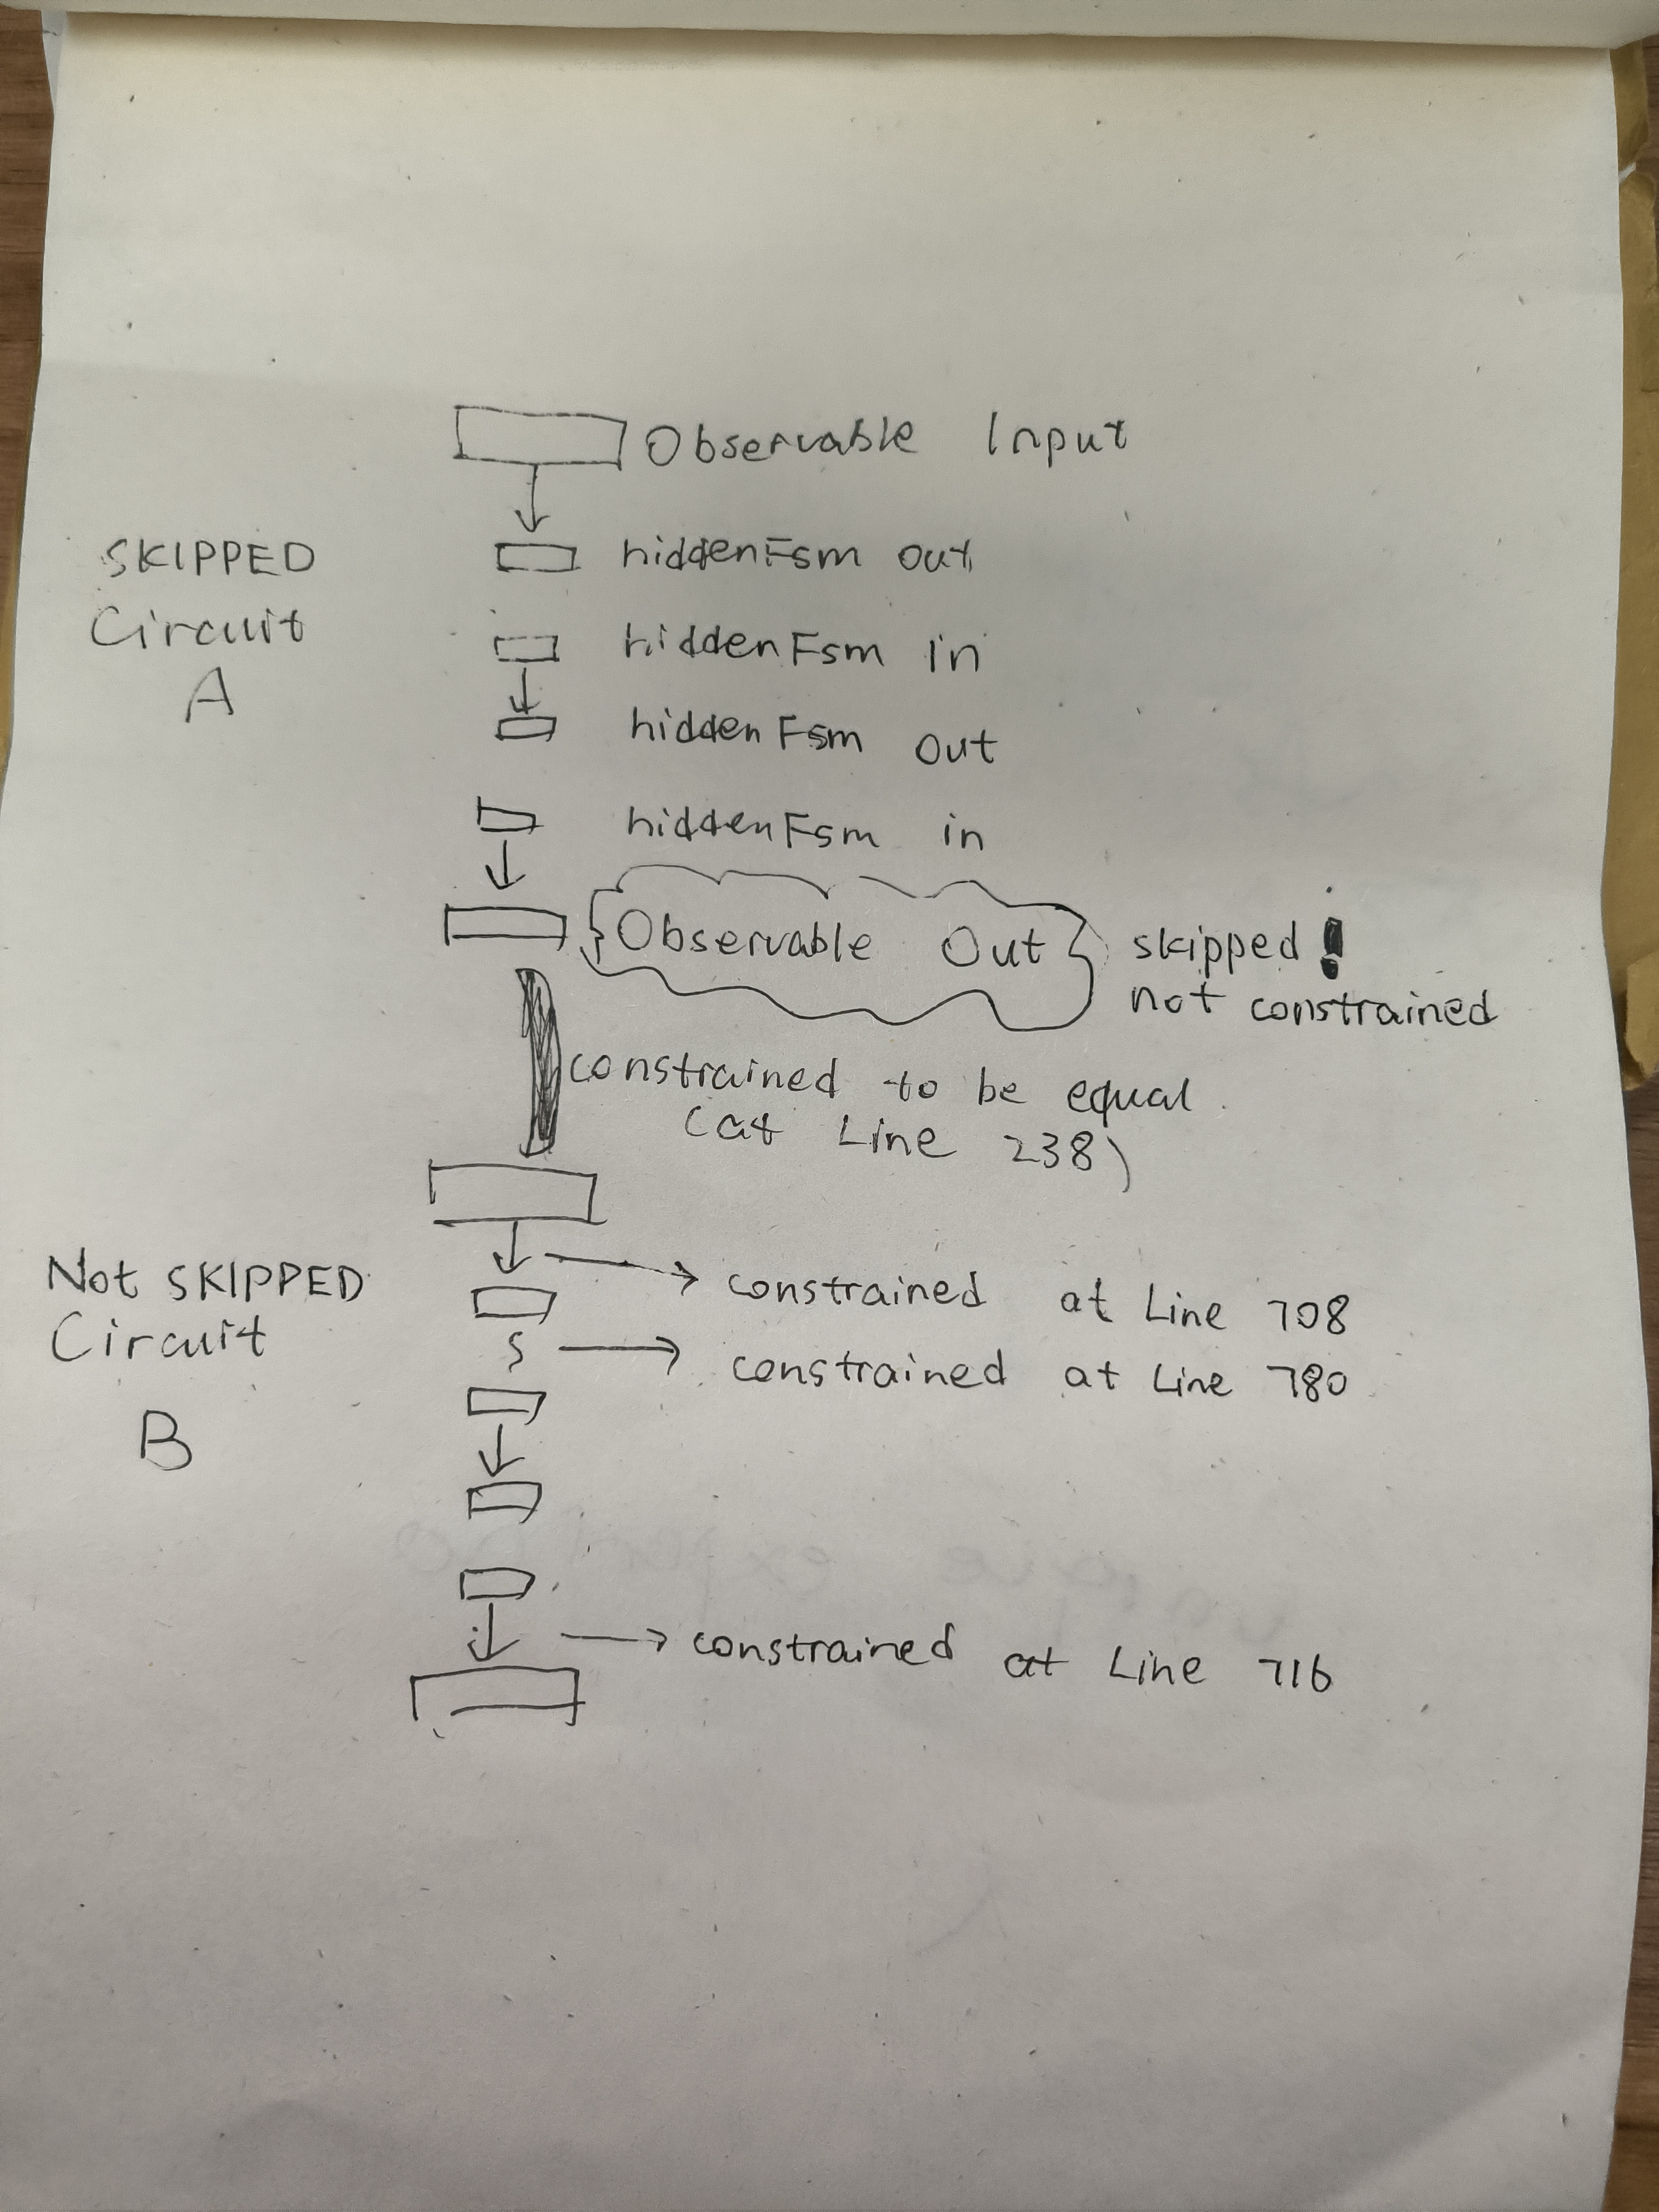 Observable Input
SKIPPED
Circuit
A
hiddenFsm out
hiddenFsm in
hiddenFsm out
hiddenFsm in
Observable Out
skipped!
not constrained
constrained to be equal
(at Line 238)
Not SKIPPED
Circuit
B
constrained at Line 708
constrained at Line 780
constrained at Line 716